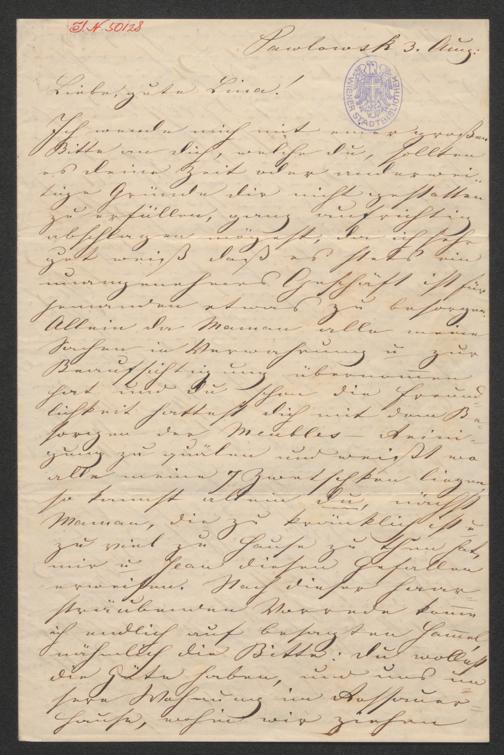 J.N. 50128
Pawlowsk 3. Aug.
WIENER STADTBIBLIOTHEK
Liebe, gute Lina!
Ich wende mich mit einer großen
Bitte an dich, welche du, sollten
es deine Zeit oder anderwei-
tige Gründe dir nicht gestatten
zu erfüllen, ganz aufrichtig
abschlagen mögest, da ich sehr
gut weiß daß es stets ein
unangenehmes Geschäft ist für
jemanden etwas zu besorgen.
Allein da Maman alle meine
Sachen in Verwahrung u zur
Beaufsichtigung übernommen
hat und du schon die Freund-
lichkeit hattest dich mit dem Be-
sorgen der Meubles-Reini-
gung zu quälen und weißt wo
alle meine 7 Zwetschken liegen,
so kannst allein Du, nächst
Maman, die zu kränklich ist u
zu viel zu Hause zu thun hat,
mir u Jean diesen Gefallen
erweisen. Nach dieser haar-
sträubenden Vorrede komme
ich endlich auf besagten Hamel,
nähmlich die Bitte: Du wollest
die Güte haben, und uns un
sere Wohnung im
hause, wohin wir ziehen